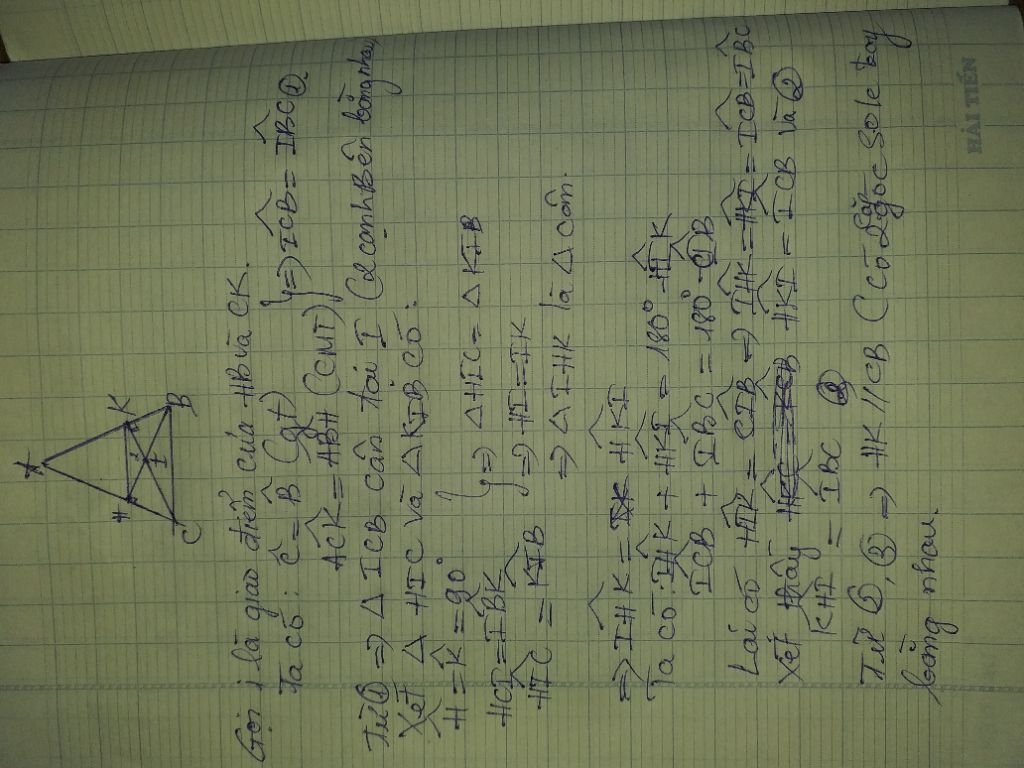 A
H
K
I
C
B
Gọi i là giao điểm của HB và CK.
Ta có: Ĉ = B̂ (gt)
ACK = ABH (CMT) } => ICB = IBC ①
Từ ① => Δ ICB cân tại I (2 cạnh bên bằng nhau)
Xét Δ HIC và Δ KIB có:
H = K = 90°
HCI = IBK } => Δ HIC = Δ KIB
HIC = KIB => HI = IK
=> Δ IHK là Δ cân.
=> IHK = HKI
Ta có: IHK + HKI = 180° - HIK
ICB + IBC = 180° - CIB
Lại có HIK = CIB => IHK = HKI = ICB = IBC
Xét thấy HKI = ICB và
KHI = IBC ②
Từ ②, ③ => HK // CB (Có 2 cặp góc Sole
bằng nhau.
HẢI TIẾN